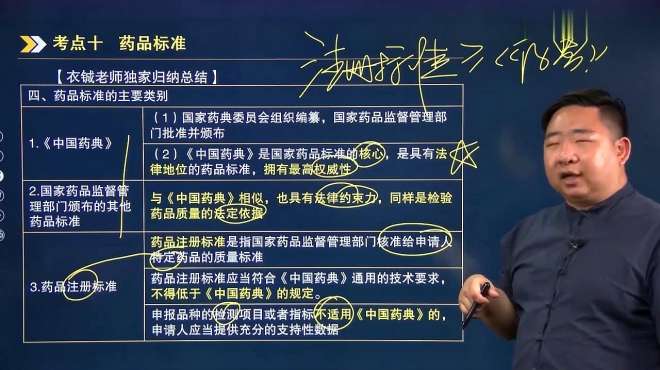 考点十 药品标准
【衣铖老师独家归纳总结】
注册标准≥《药典》
四、药品标准的主要类别
1.《中国药典》
（1）国家药典委员会组织编纂，国家药品监督管理部
门批准并颁布
（2）《中国药典》是国家药品标准的核心，是具有法
律地位的药品标准，拥有最高权威性
2.国家药品监督管
理部门颁布的其他
药品标准
与《中国药典》相似，也具有法律约束力，同样是检验
药品质量的法定依据
3.药品注册标准
药品注册标准是指国家药品监督管理部门核准给申请人
特定药品的质量标准
药品注册标准应当符合《中国药典》通用的技术要求，
不得低于《中国药典》的规定。
申报品种的检测项目或者指标不适用《中国药典》的，
申请人应当提供充分的支持性数据